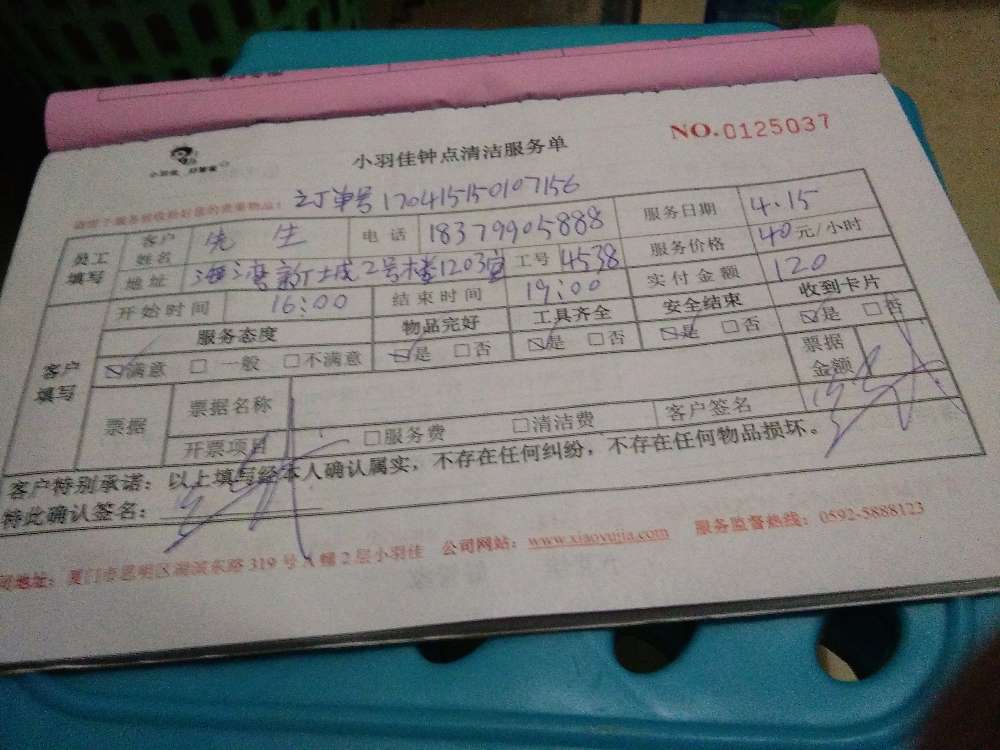 NO.0125037
小羽佳 好管家
小羽佳钟点清洁服务单
订单号170415150107156
员工填写 客户姓名 先生 电话 18379905888 服务日期 4.15
地址 海湾新城2号楼1203室 工号 4538 服务价格 40元/小时
客户填写 开始时间 16:00 结束时间 19:00 实付金额 120
服务态度 物品完好 工具齐全 安全结束 收到卡片
☑满意 □一般 □不满意 ☑是 □否 ☑是 □否 ☑是 □否 ☑是 □否
票据 票据名称 票据金额
开票项目 □服务费 □清洁费 客户签名
客户特别承诺：以上填写经本人确认属实，不存在任何纠纷，不存在任何物品损坏。
特此确认签名：
司地址：厦门市思明区湖滨东路319号A幢2层小羽佳 公司网站：www.xiaoyujia.com 服务监督热线：0592-5888123